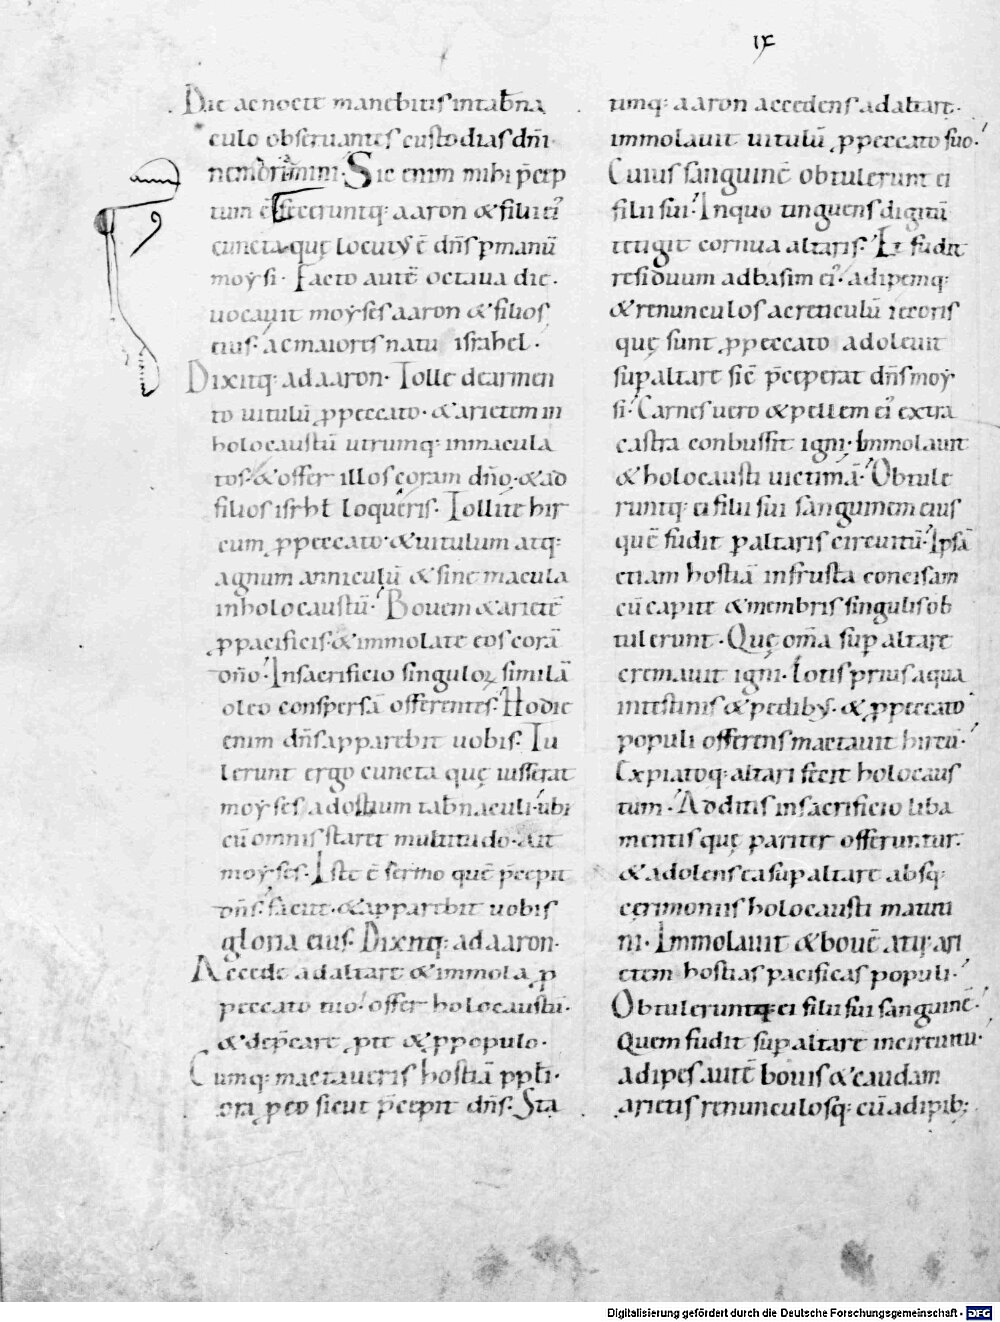 ix
Die ac nocte manebitis in tab̄na
culo observantes custodias dn̄i
ne moriamini. Sic enim mihi p̄cep
tum ē. Feceruntq; aaron & filii ei᾽
cuncta quę locutꝰ ē dn̄s p manū
moẏsi. Facto autē octavo die.
vocavit moẏses aaron & filios
eius. ac maiores natu israhel.
Dixitq; ad aaron. Tolle de armen
to vitulū ꝓ peccato. & arietem in
holocaustū utrumq; inmacula
tos. & offer illos coram dn̄o. & ad
filios isrhl̄ loqueris. Tollite hir
cum ꝓ peccato. & vitulum atq;
agnum anniculū & sine macula
in holocaustū. Bovem & arietē
ꝓ pacificis. & immolate eos corā
dn̄o. In sacrificio singuloꝝ similā
oleo conspersā offerentes. Hodie
enim dn̄s apparebit vobis. Tu
lerunt ergo cuncta quę iusserat
moẏses ad ostium tab̄naculi. ubi
cū omnis staret multitudo. Ait
moẏses. Iste ē sermo quē p̄cepit
dn̄s. facite. & apparebit vobis
gloria eius. Dixitq; ad aaron.
Accede ad altare & immola ꝓ
peccato tuo. offer holocaustū.
& dep̄care ꝓ te & ꝓ populo.
Cumq; mactaveris hostiā ppl̄i.
ora ꝓ eo sicut p̄cepit dn̄s. Sta
timq; aaron accedens ad altare.
immolavit vitulū ꝓ peccato suo.
Cuius sanguinē obtulerunt ei
filii sui. In quo tinguens digitū
tetigit cornua altaris. Et fudit
residuum ad basim ei᾽. adipemq;
& renunculos ac reticulū iecoris
quę sunt ꝓ peccato adolevit
sup altare sic̄ p̄ceperat dn̄s moẏ
si. Carnes vero & pellem ei᾽ extra
castra conbussit igni. Immolavit
& holocausti victimā. Obtule
runtq; ei filii sui sanguinem eius
quē fudit p altaris circuitū. Ipsā
etiam hostiā in frusta concisam
cū capite & membris singulis ob
tulerunt. Quę om̄a sup altare
cremavit igni. Lotis prius aqua
intestinis & pedibꝰ. & ꝓ peccato
populi offerens mactavit hircū.
Expiatoq; altari fecit holocaus
tum. Additis in sacrificio liba
mentis quę pariter offeruntur.
& adolens ea sup altare absq;
cęrimoniis holocausti matuti
ni. Immolavit & bovē atq; ari
etem hostias pacificas populi.
Obtuleruntq; ei filii sui sanguinē.
Quem fudit sup altare in circuitu.
adipes autē bovis & caudam
arietis renunculosq; cū adipib;
Digitalisierung gefördert durch die Deutsche Forschungsgemeinschaft - DFG